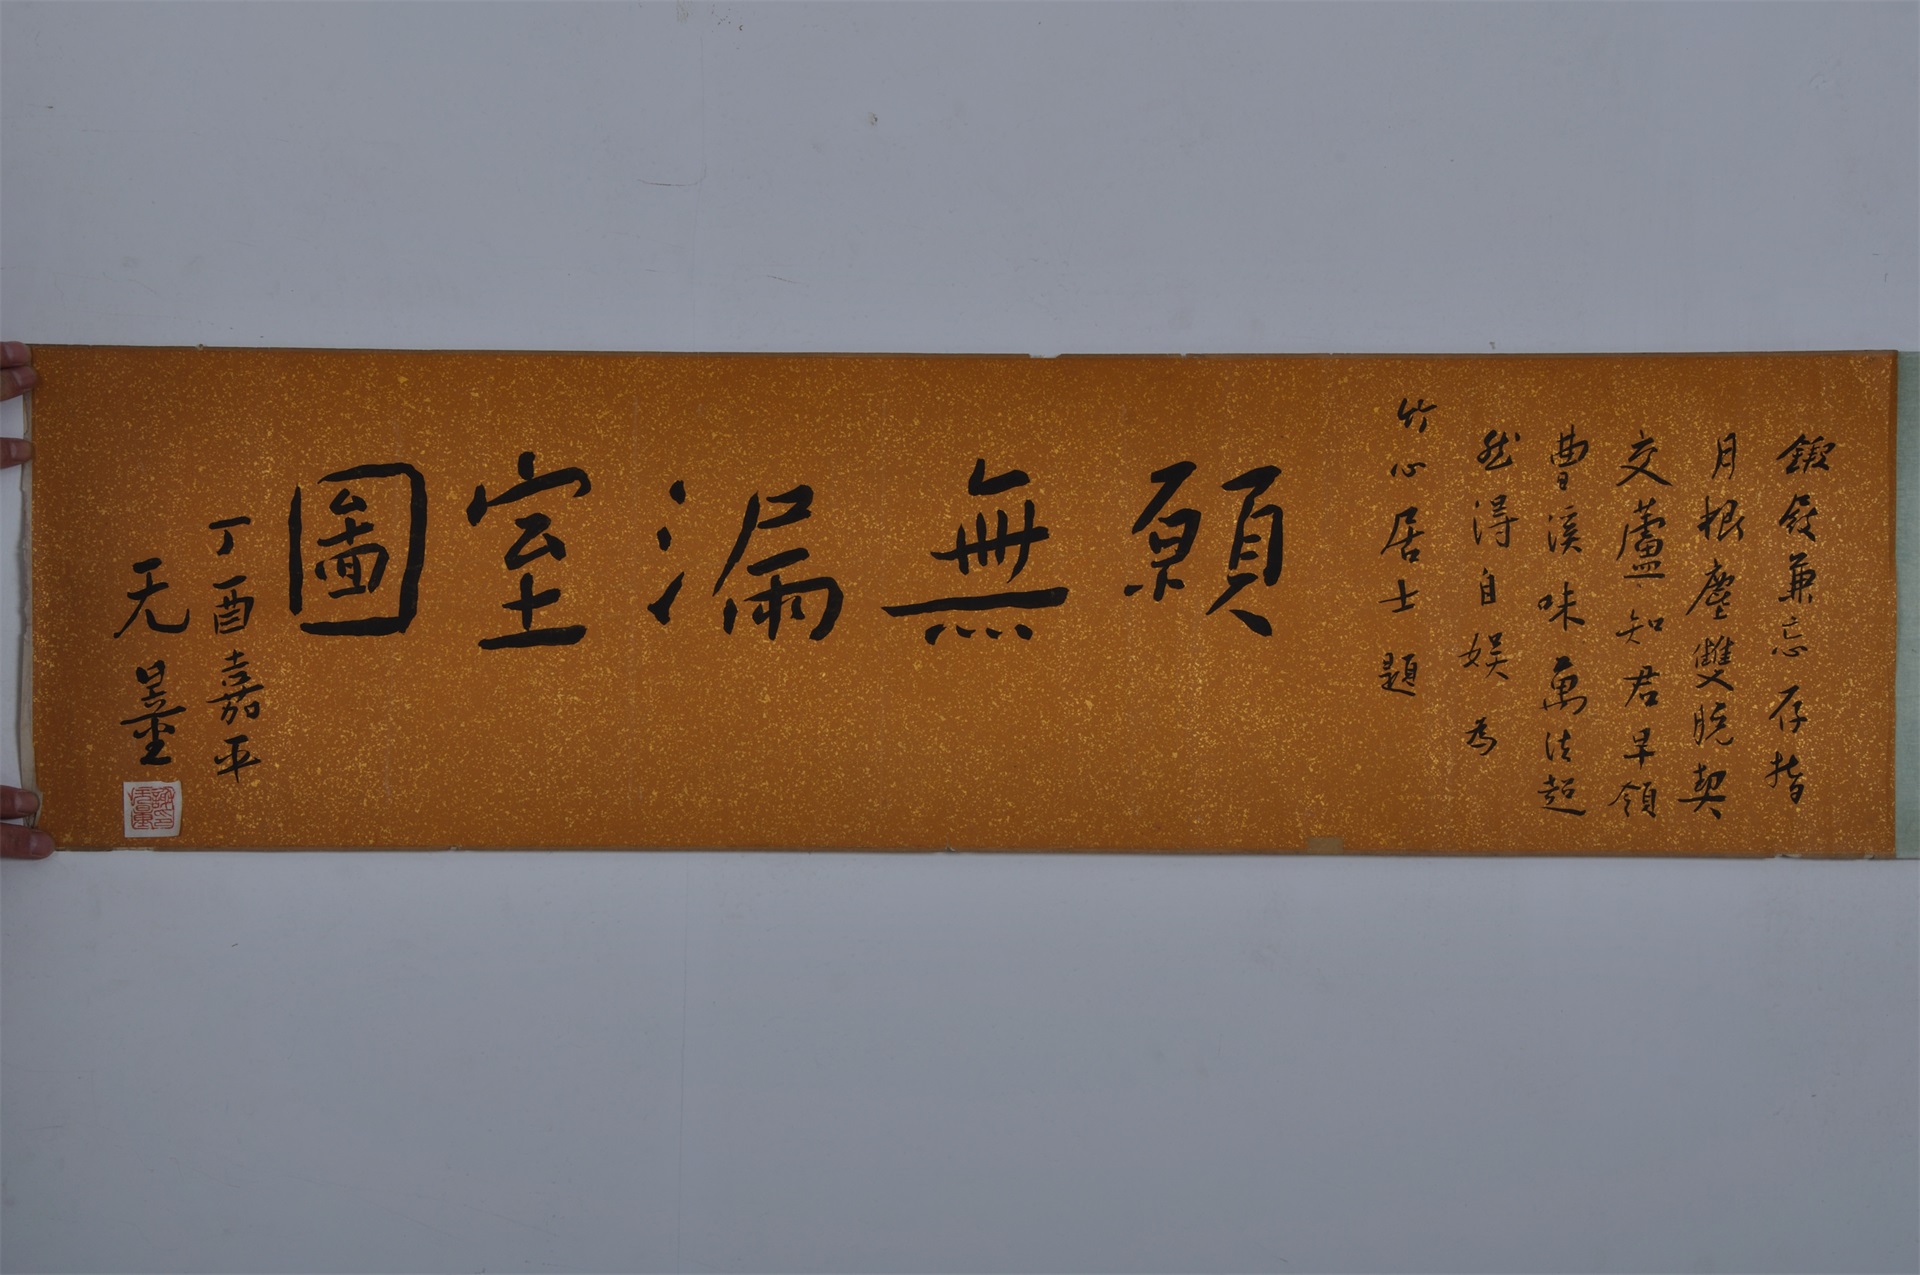 兼忘存指
月根塵雙脫契
交蘆知君早領
曹溪味萬法超
然得自娱為
竹心居士題
願無漏室圖
丁酉嘉平
无量